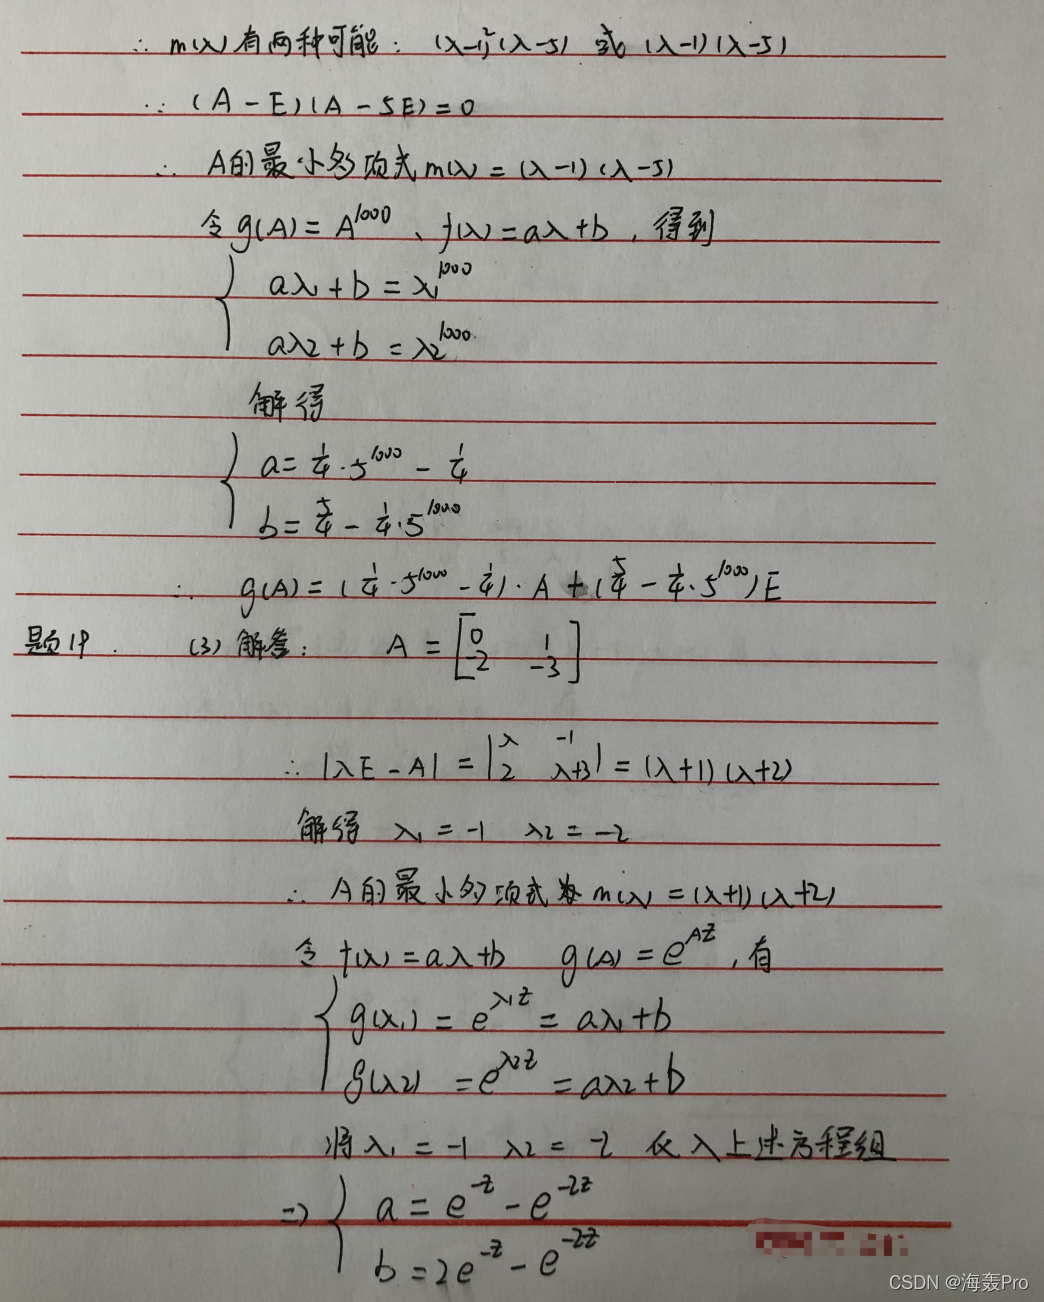 ∴ m(λ)有两种可能: (λ-1)²(λ-5) 或 (λ-1)(λ-5)
∵ (A-E)(A-5E)=0
∴ A的最小多项式m(λ)=(λ-1)(λ-5)
令g(A)=A^1000、f(λ)=aλ+b,得到
{ aλ1+b=λ1^1000
aλ2+b=λ2^1000
解得
{ a=1/4·5^1000-1/4
b=5/4-1/4·5^1000
∴ g(A)=(1/4·5^1000-1/4)·A+(5/4-1/4·5^1000)E
题19. (3)解答: A=[0 1
-2 -3]
∴ |λE-A|=|λ -1
2 λ+3|=(λ+1)(λ+2)
解得 λ1=-1 λ2=-2
∴ A的最小多项式为m(λ)=(λ+1)(λ+2)
令f(λ)=aλ+b g(A)=e^Az,有
{ g(λ1)=e^λ1z=aλ1+b
g(λ2)=e^λ2z=aλ2+b
将λ1=-1 λ2=-2 代入上述方程组
⇒ { a=e^-z-e^-2z
b=2e^-z-e^-2z
CSDN @海轰Pro